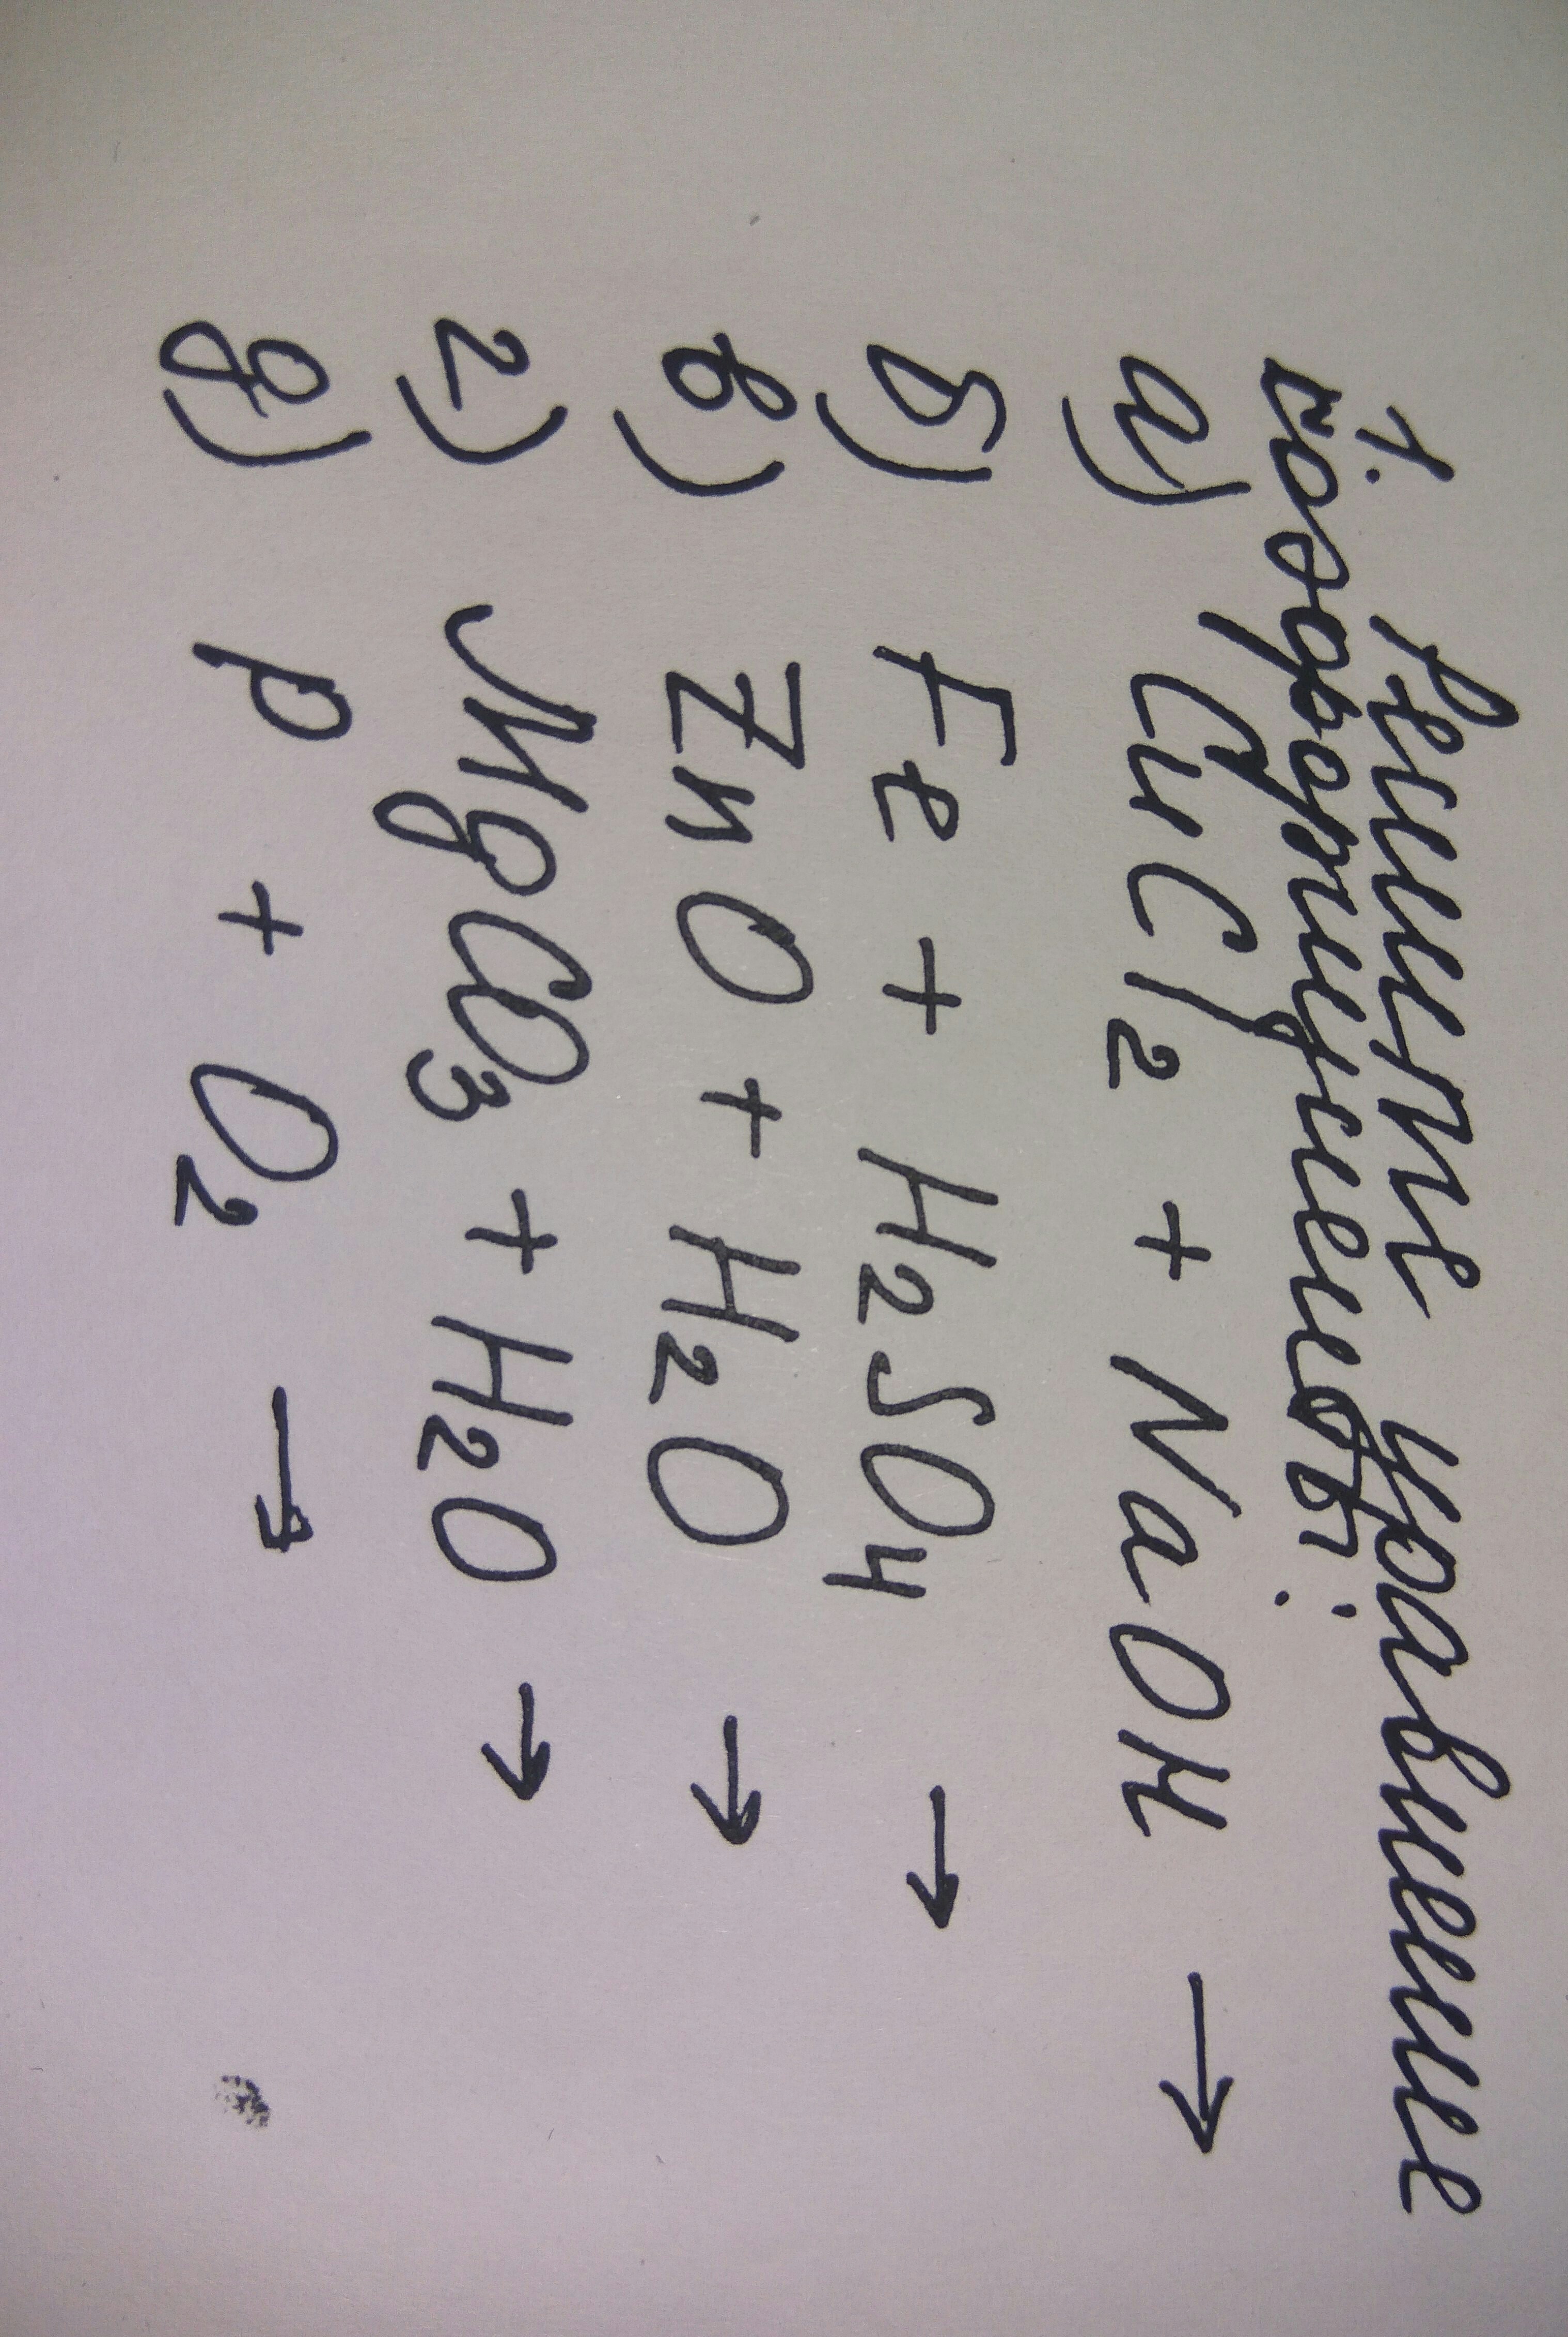 1. Решите уравнение
коэффициенты:
а) CuCl2 + NaOH →
б) Fe + H2SO4 →
в) ZnO + H2O →
г) MgCO3 + H2O →
д) P + O2 →